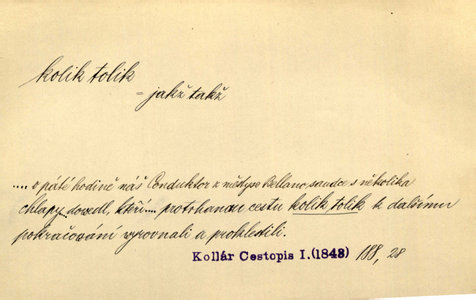 kolik tolik
= jakž takž
.... o páté hodině náš Conduktor z městyse Bellano, soudce s několika
chlapy dovedl, kteří.... protrhanou cestu kolik tolik k dalšímu
pokračování vyrovnali a prohledili.
Kollár Cestopis I. (1843) 188, 28